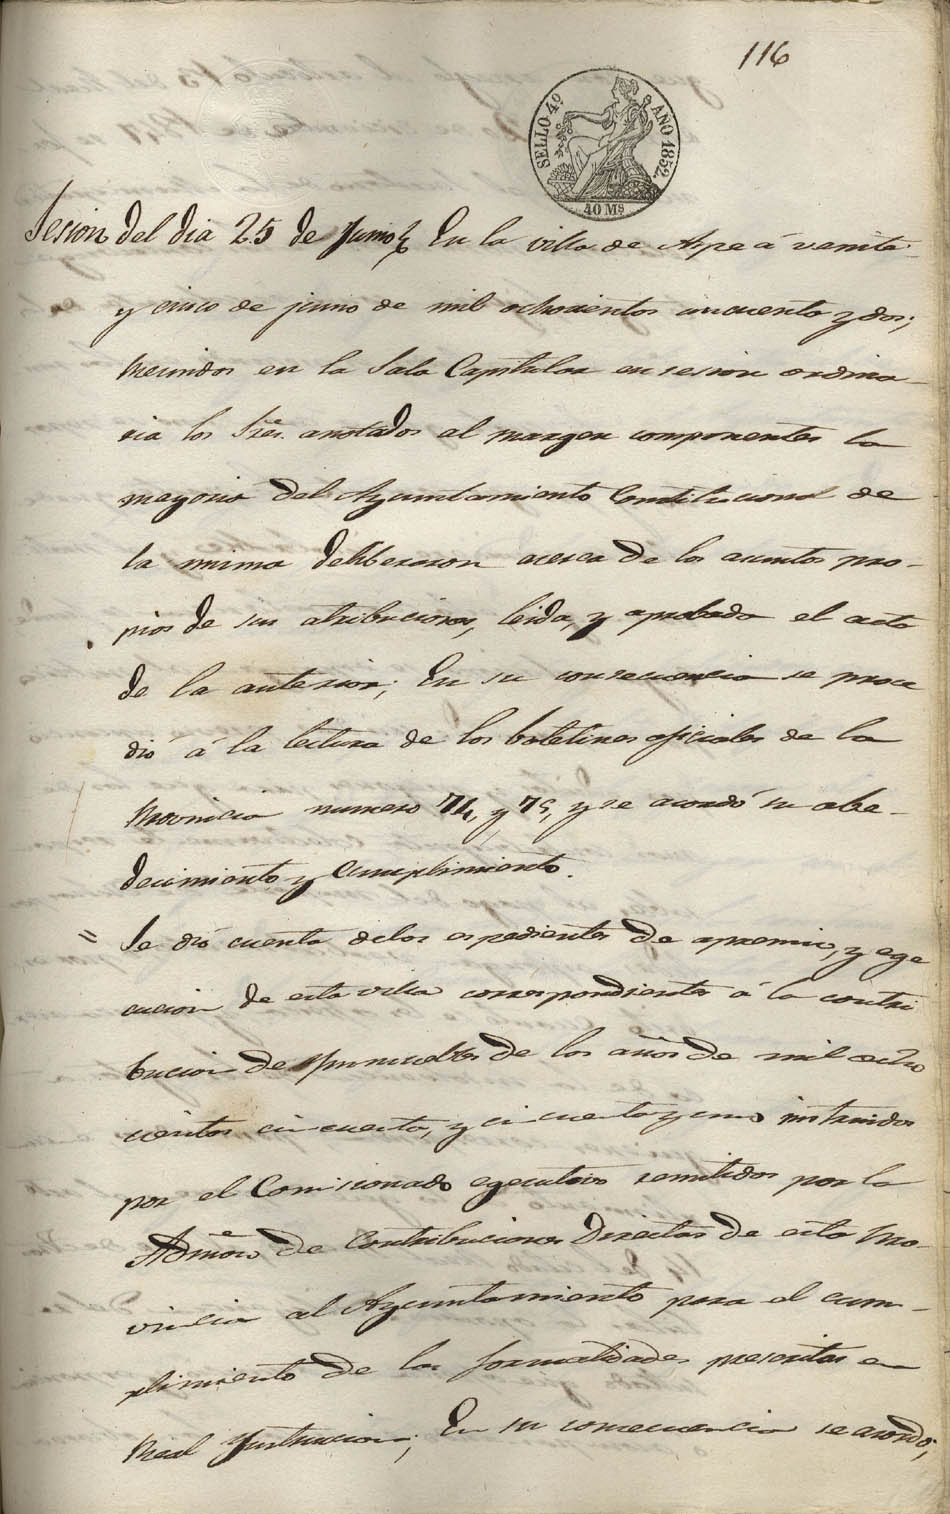 116
SELLO 4º AÑO 1852.
40 Ms
Sesion del dia 25 de Junio} En la villa de Aspe á veinte
y cinco de junio de mil ochocientos cincuenta y dos;
Reunidos en la Sala Capitular en sesion ordina-
ria los Sres. anotados al margen componentes la
mayoria del Ayuntamiento Constitucional de
la misma deliberaron acerca de los asuntos pro-
pios de sus atribuciones, leida, y aprobada el acta
de la anterior; En su consecuencia se proce
dió á la lectura de los boletines oficiales de la
Provincia numero 74, y 75, y se acordó su obe-
decimiento y cumplimiento.
= Se dió cuenta delos espedientes de apremio, y ege
cucion de esta villa correspondientes á la contri
bucion de Ynmuebles de los años de mil ocho
cientos cincuenta, y cincuenta y uno instruidos
por el Comisionado egecutivo remitidos por la
Admon de Contribuciones Directas de esta Pro-
vincia al Ayuntamiento para el cum-
plimiento de las formalidades prescritas en
Real Ynstruccion; En su consecuencia se acordó;